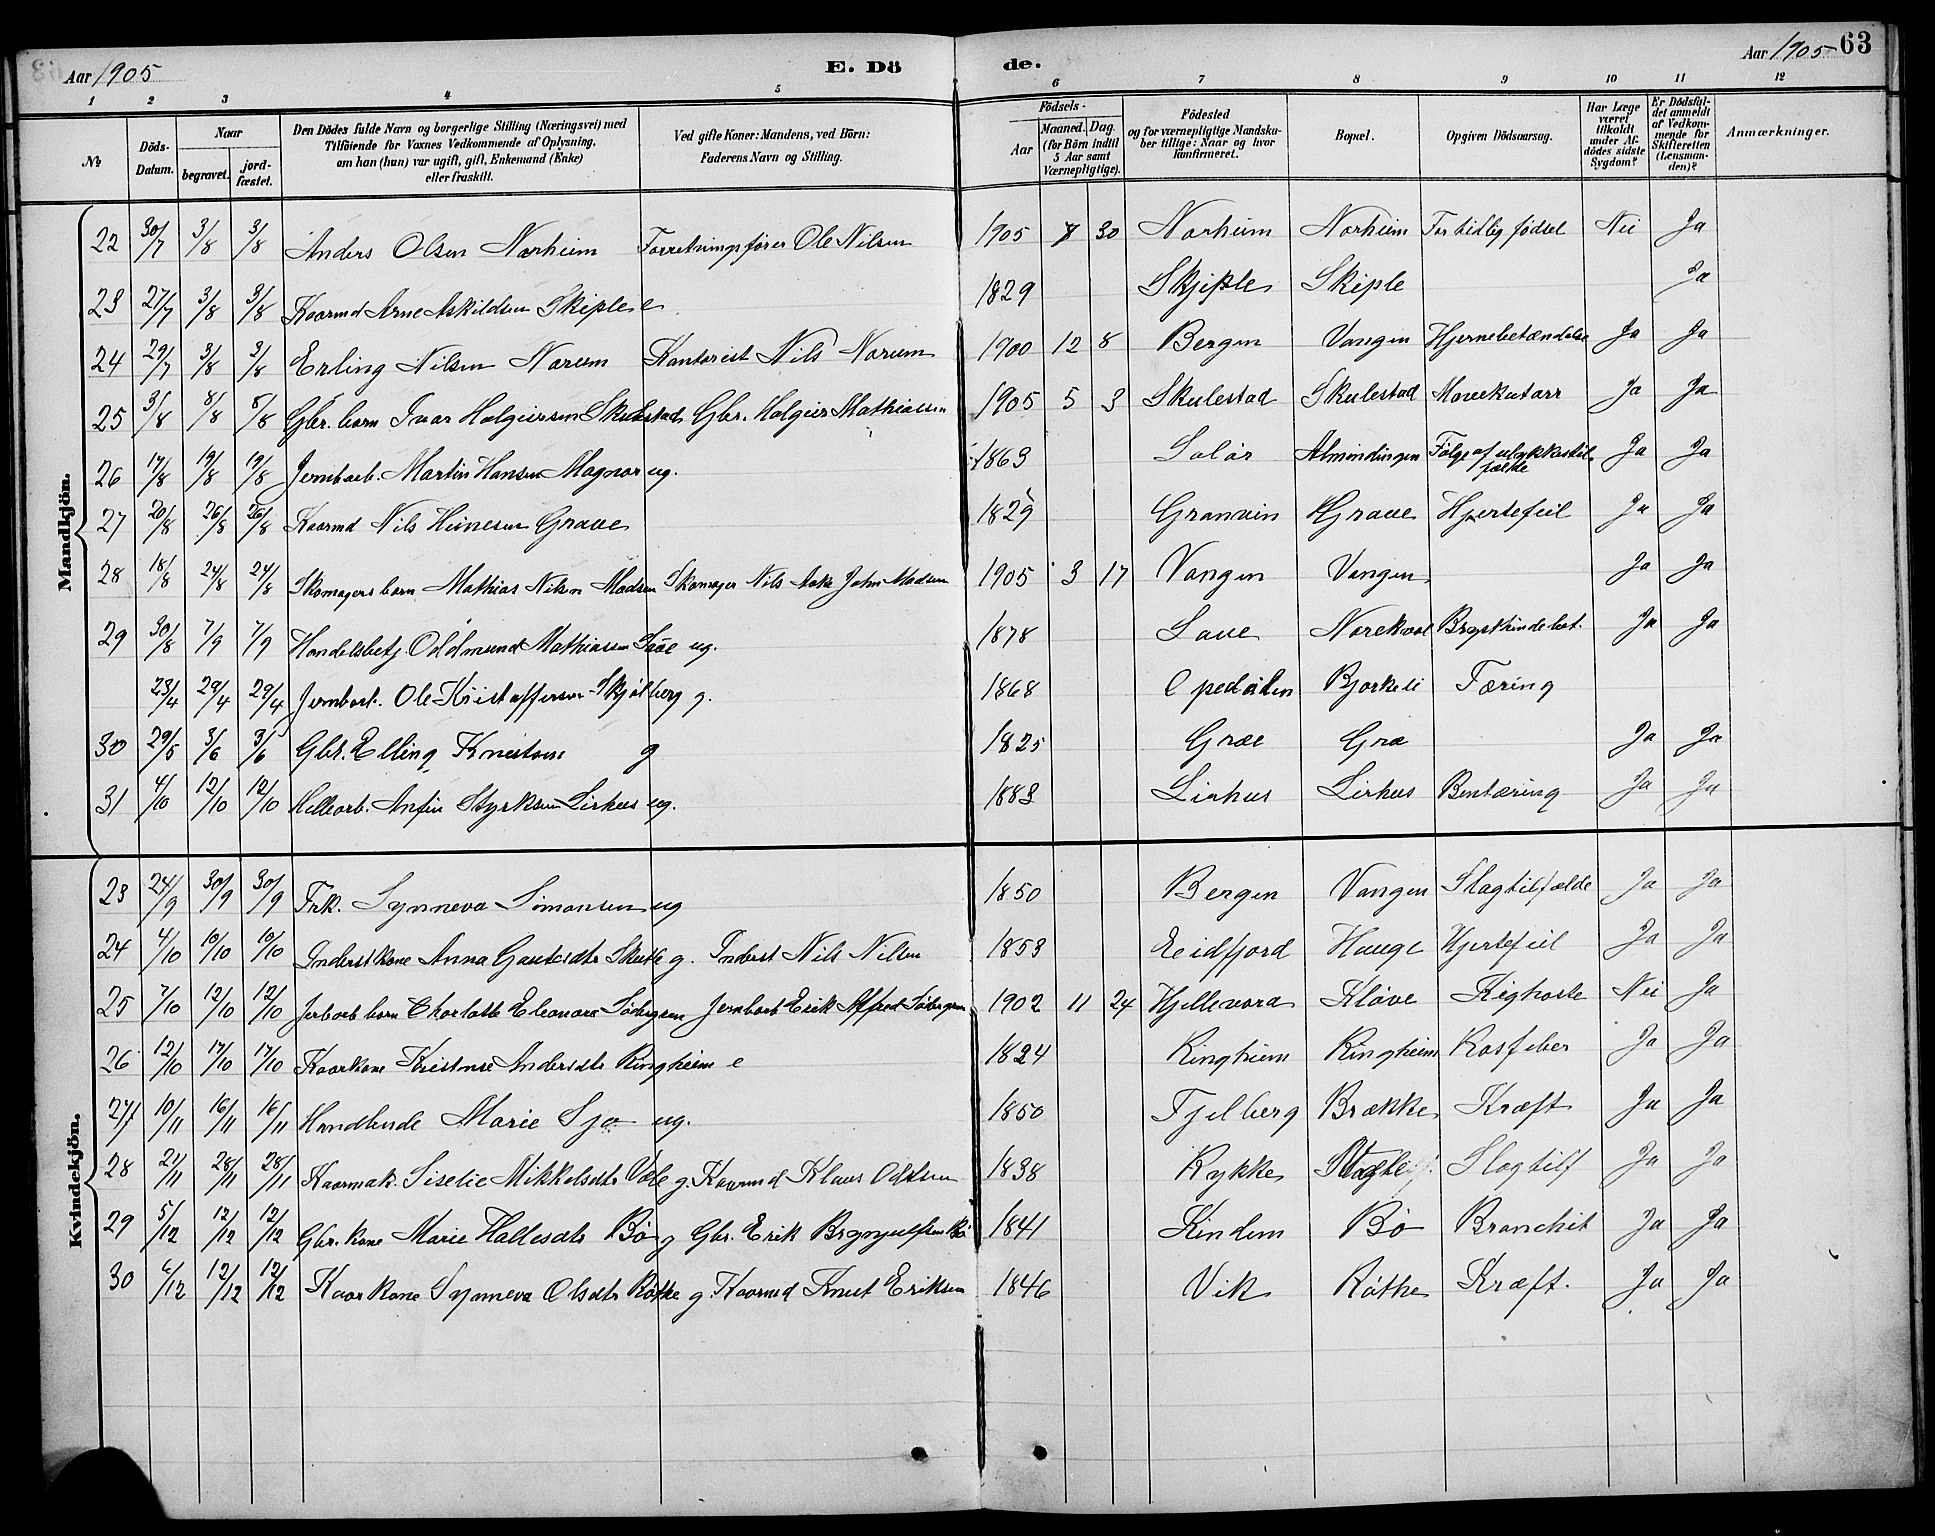 Aar 1905 E. Dö de. Aar 1905 63
1 2 3 4 5 6 7 8 9 10 11 12
№ Döds-Datum. Naar begravet. jordfæstet. Den Dödes fulde Navn og borgerlige Stilling (Næringsvei) med Tilföiende for Voxnes Vedkommende af Oplysning, om han (hun) var ugift, gift, Enkemand (Enke) eller fraskilt. Ved gifte Koner: Mandens, ved Börn: Faderens Navn og Stilling. Födsels- Aar Maaned. Dag. (for Börn indtil 5 Aar samt Værnepligtige). Födested og for værnepligtige Mandskaber tillige: Naar og hvor konfirmeret. Bopæl. Opgiven Dödsaarsag. Har Læge været tilkaldt under Afdödes sidste Sygdom? Er Dödsfaldet anmeldt af Vedkommende for Skifteretten (Lensmanden)? Anmærkninger.
Mandkjön.
22 30/7 3/8 3/8 Anders Olsen Norheim Forretningsfører Ole Nilsen 1905 7 30 Norheim Norheim For tidlig fødsel Nei Ja
23 27/7 3/8 3/8 Kaarmd Arne Askildsen Skiple e. 1829 Skjiple Skiple Ja
24 29/7 3/8 3/8 Erling Nilsen Norum Kontorist Nils Norum 1900 12 8 Bergen Vangen Hjernebetændelse Ja Ja
25 3/8 8/8 8/8 Gbr. barn Ivar Holgiersen Skulestad Gbr. Holgier Mathiassen 1905 5 3 Skulestad Skulestad Mavekatarr Ja Ja
26 17/8 19/8 19/8 Jernbarb. Martin Hansen Magnor ug. 1863 Solør Almindingen Følge af ulykkestilfælde Ja Ja
27 20/8 26/8 26/8 Kaarmd Nils Heinesen Grave 1829 Granvin Grave Hjertefeil Ja Ja
28 18/8 24/8 24/8 Skomagers barn Mathias Nilsen Madsen Skomager Nils John Madsen 1905 3 17 Vangen Vangen Ja Ja
29 30/8 7/9 7/9 Handelsbetj. Oddmund Mathiassen ug. 1878 Saue Ja Ja
23/4 29/4 29/4 Jernbarb. Ole Kristoffersen Skjølberg g. 1868 Bjørkeli Tæring
30 29/5 3/6 3/6 Gbr. Elling Knutson g 1825 Græe Græ Ja Ja
31 4/10 12/10 12/10 Hellearb. Anfin Styrksen Lirhus ug. 1883 Lirhus Lirhus Bentæring Ja Ja
Kvindekjön.
23 24/9 30/9 30/9 Frk. Synneva Simonsen ug 1850 Bergen Vangen Slagtilfælde Ja Ja
24 4/10 10/10 10/10 Inderst kone Anna Gautesdtr Skutle g. Inderst Nils Nilsen 1853 Eeidfjord Hauge Hjertefeil Ja Ja
25 7/10 12/10 12/10 Jerbarb barn Charlotte Eleonora Södergren Jernbarb Erik Alfred Södergren 1902 11 24 Hjellevora Kløve Kighoste Nei Ja
26 12/10 17/10 17/10 Kaarkone Kristense Andersdtr Ringheim e 1824 Ringheim Ringheim Rosfeber Ja Ja
27 10/11 16/11 16/11 Handlende Marie Sjo ug. 1850 Fjelberg Brække Kræft Ja Ja
28 21/11 28/11 28/11 Kaarmak. Siselie Mikkelsdtr g. Kaarmd Klaus Oddsen 1838 Rykke Slagtilf Ja Ja
29 5/12 12/12 12/12 Gbr. kone Marie Hallesdtr Bø g Gbr. Erik Brynjulfsen Bø 1841 Kindem Bø Bronchit Ja Ja
30 6/12 12/12 12/12 Kaarkone Synneva Olsdtr Røthe g. Kaarmd Knut Eriksen 1846 Vik Røthe Kræft. Ja Ja